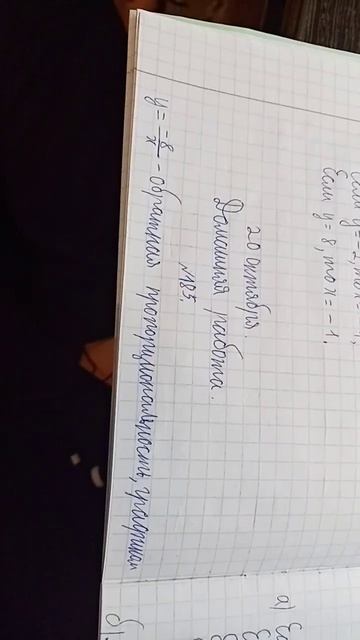 Если y = -2, то x =
Если y = 8, то x = -1.
20 октября.
Домашняя работа.
№185.
y = -8/x - обратная пропорциональность, график
а)
б)